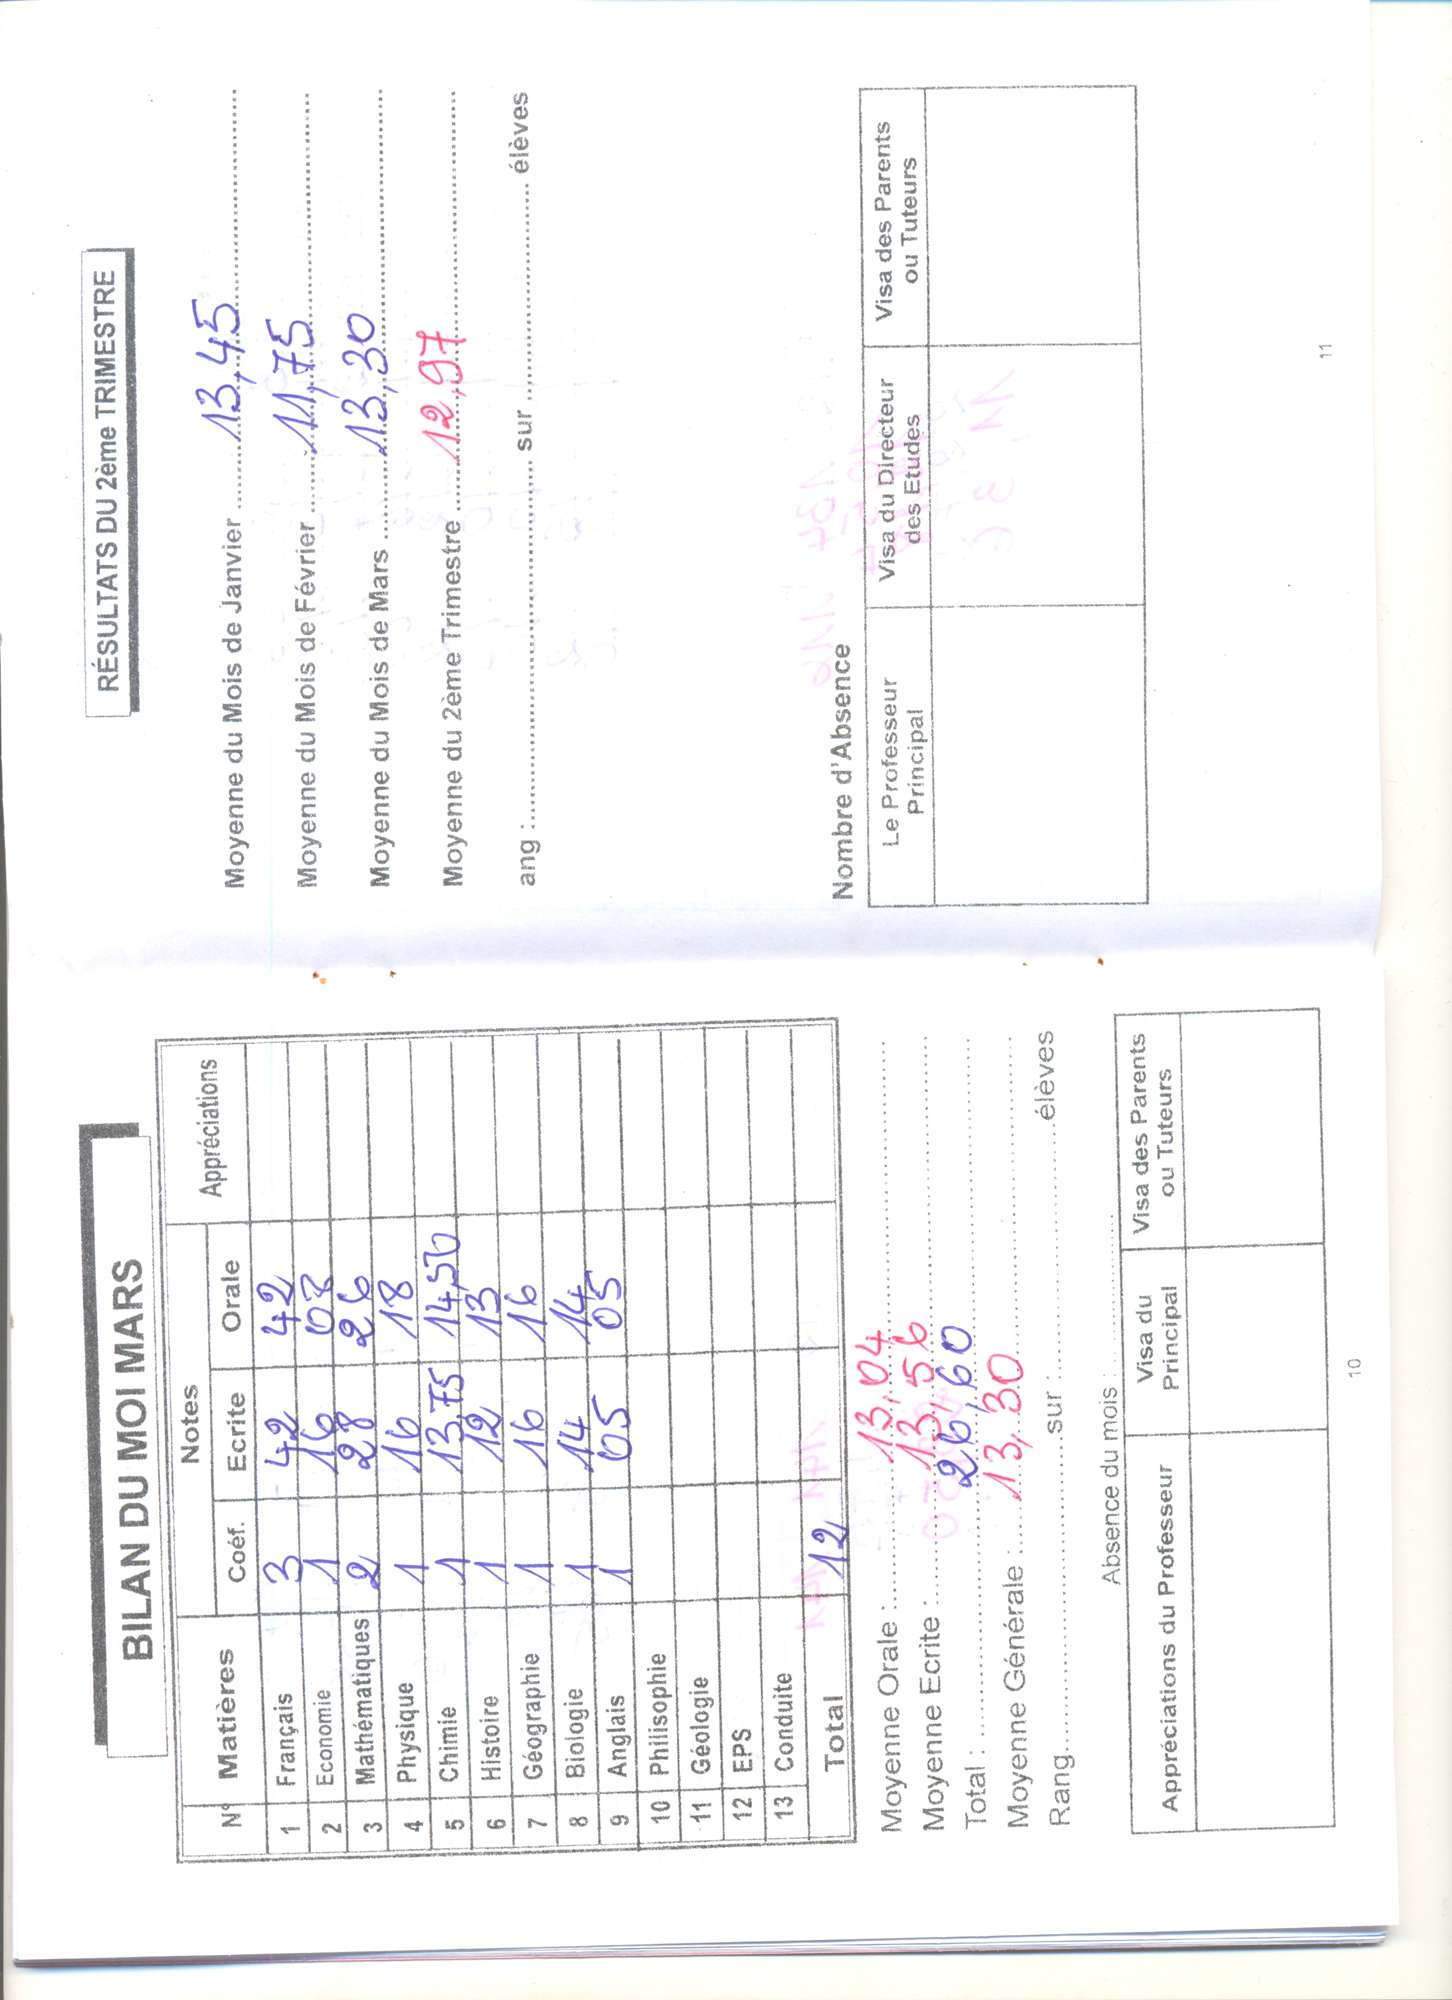 BILAN DU MOI MARS
N° Matières Notes Appréciations
Coéf. Ecrite Orale
1 Français 3 42 42
2 Economie 1 16 08
3 Mathématiques 2 28 26
4 Physique 1 16 18
5 Chimie 1 13,75 14,50
6 Histoire 1 12 13
7 Géographie 1 16 16
8 Biologie 1 14 14
9 Anglais 1 05 05
10 Philisophie
11 Géologie
12 EPS
13 Conduite
Total 12
Moyenne Orale : 13,04
Moyenne Ecrite : 13,56
Total : 26,60
Moyenne Générale : 13,30
Rang sur : élèves
Absence du mois :
Appréciations du Professeur Visa du Principal Visa des Parents ou Tuteurs
10
RÉSULTATS DU 2ème TRIMESTRE
Moyenne du Mois de Janvier 13,45
Moyenne du Mois de Février 11,75
Moyenne du Mois de Mars 13,30
Moyenne du 2ème Trimestre 12,97
ang : sur élèves
Nombre d'Absence
Le Professeur Principal Visa du Directeur des Etudes Visa des Parents ou Tuteurs
11